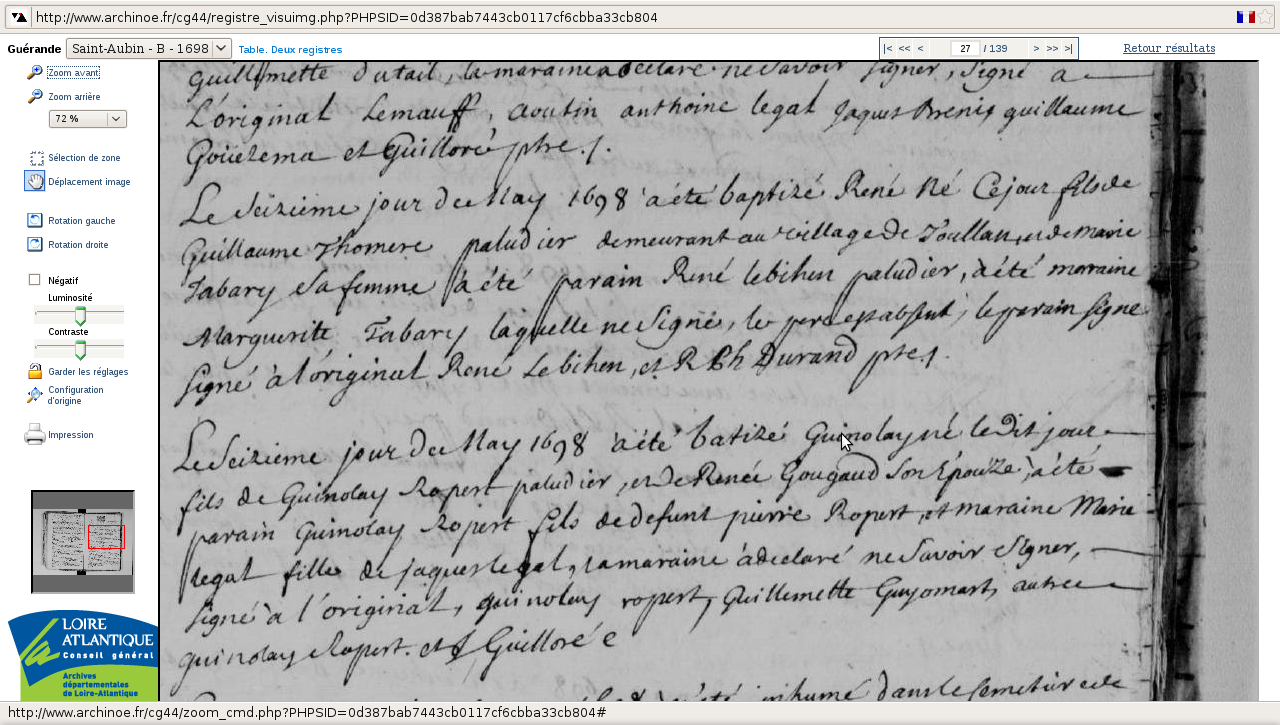 http://www.archinoe.fr/cg44/registre_visuimg.php?PHPSID=0d387bab7443cb0117cf6cbba33cb804
Guérande Saint-Aubin - B - 1698 Table. Deux registres |< << < 27 / 139 > >> >| Retour résultats
Zoom avant
Zoom arrière
72 %
Sélection de zone
Déplacement image
Rotation gauche
Rotation droite
Négatif
Luminosité
Contraste
Garder les réglages
Configuration
d'origine
Impression
LOIRE
ATLANTIQUE
Conseil général
Archives
départementales
de Loire-Atlantique
guillemette dutail, la maraine a declaré ne savoir signer, signé a
L'original Lemauff, aoutin anthoine legal Jaques Brenis guillaume
Goüezema et Guilloré ptre.
Le Seizieme jour de May 1698 a été baptizé René Né Ce jour fils de
Guillaume Thomere paludier demeurant au village de Toullan, et de marie
Tabary sa femme à été parain René lebihen paludier, à été maraine
Marguerite Tabary laquelle ne Signe, le pere est absent, le parain signe
signé à l'original René Lebihen, et R Ph Durand ptre.
Le Seizieme jour de May 1698 à été batizé Guinolay né le dit jour
fils de Guinolay Ropert paludier, et de Renée Gougaud son Epouze, à été
parain Guinolay Ropert fils de defunt pierre Ropert, et maraine Marie
legal fille de jaques legal, la maraine à declaré ne savoir signer,
signé à l'original, guinolay ropert, Guillemette Guyomart, autre
guinolay Ropert. et J Guilloré
inhumé dans le Cemetiere de
http://www.archinoe.fr/cg44/zoom_cmd.php?PHPSID=0d387bab7443cb0117cf6cbba33cb804#